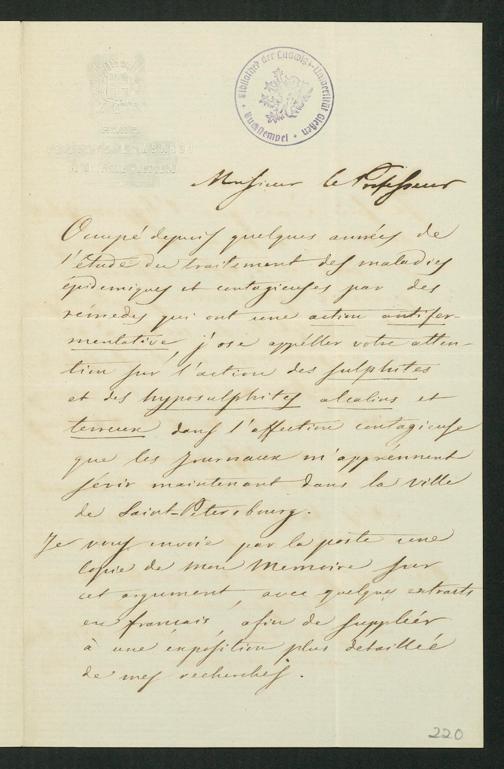 Bibliothek der Ludwigs-Universität Gießen
Buchstempel
Monsieur le Professeur
Occupé depuis quelques années de
l'étude du traitement des maladies
épidemiques et contagieuses par des
remedes qui ont une action antifer-
mentative j'ose appéller votre atten-
tion sur l'action des sulphites
et des hyposulphites alcalins et
terreux dans l'affection contagieuse
que les journaux m'apprennent
sévir maintenant dans la ville
de Saint-Petersbourg.
Je vous envoie par la poste une
copie de mon Memoire sur
cet argument, avec quelques extraits
en français, afin de suppléer
à une exposition plus detaillée
de mes recherches.
220